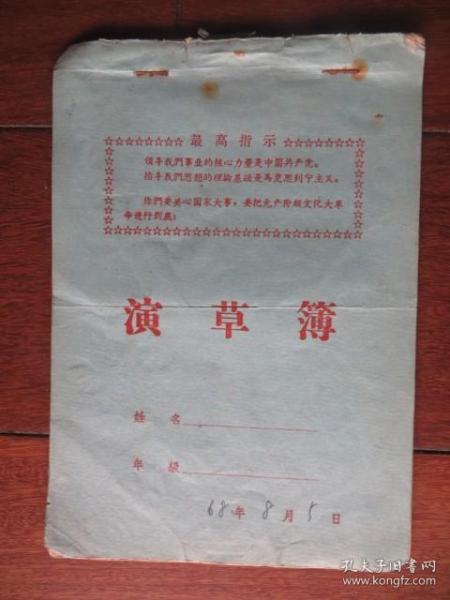 最高指示
领导我們事业的核心力量是中国共产党。
指导我們思想的理論基础是馬克思列宁主义。
你們要关心国家大事，要把无产阶級文化大革
命进行到底！
演草簿
姓 名
年 級
68年 8月5日
孔夫子旧书网
www.kongfz.com